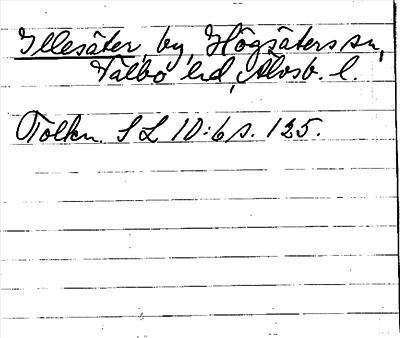 Illesäter, by, Högsäters sn,
Valbo hd, Älvsb. l.
Tolkn. S L 10:6 s. 125.